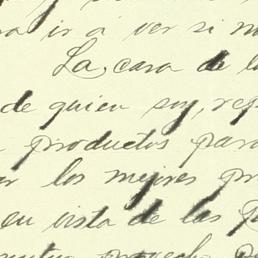 a ir á ver si m
La, casa de l
de quien soy, rep
productos para
ar los mejores pr
en vista de las